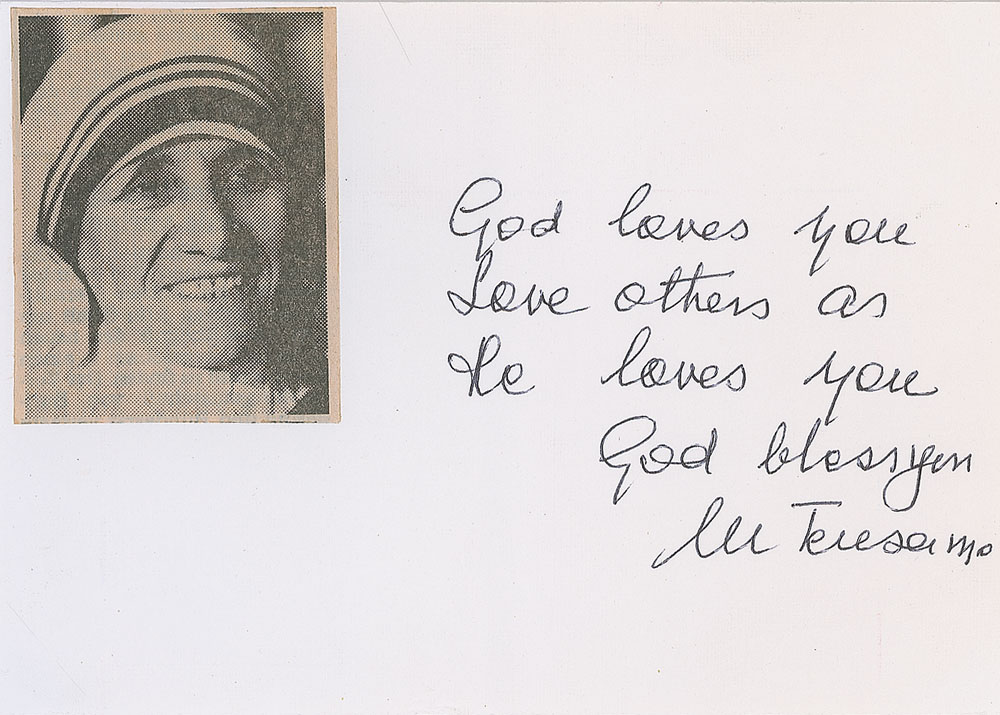 God loves you
Love others as
He loves you
God bless you
M Teresa mc